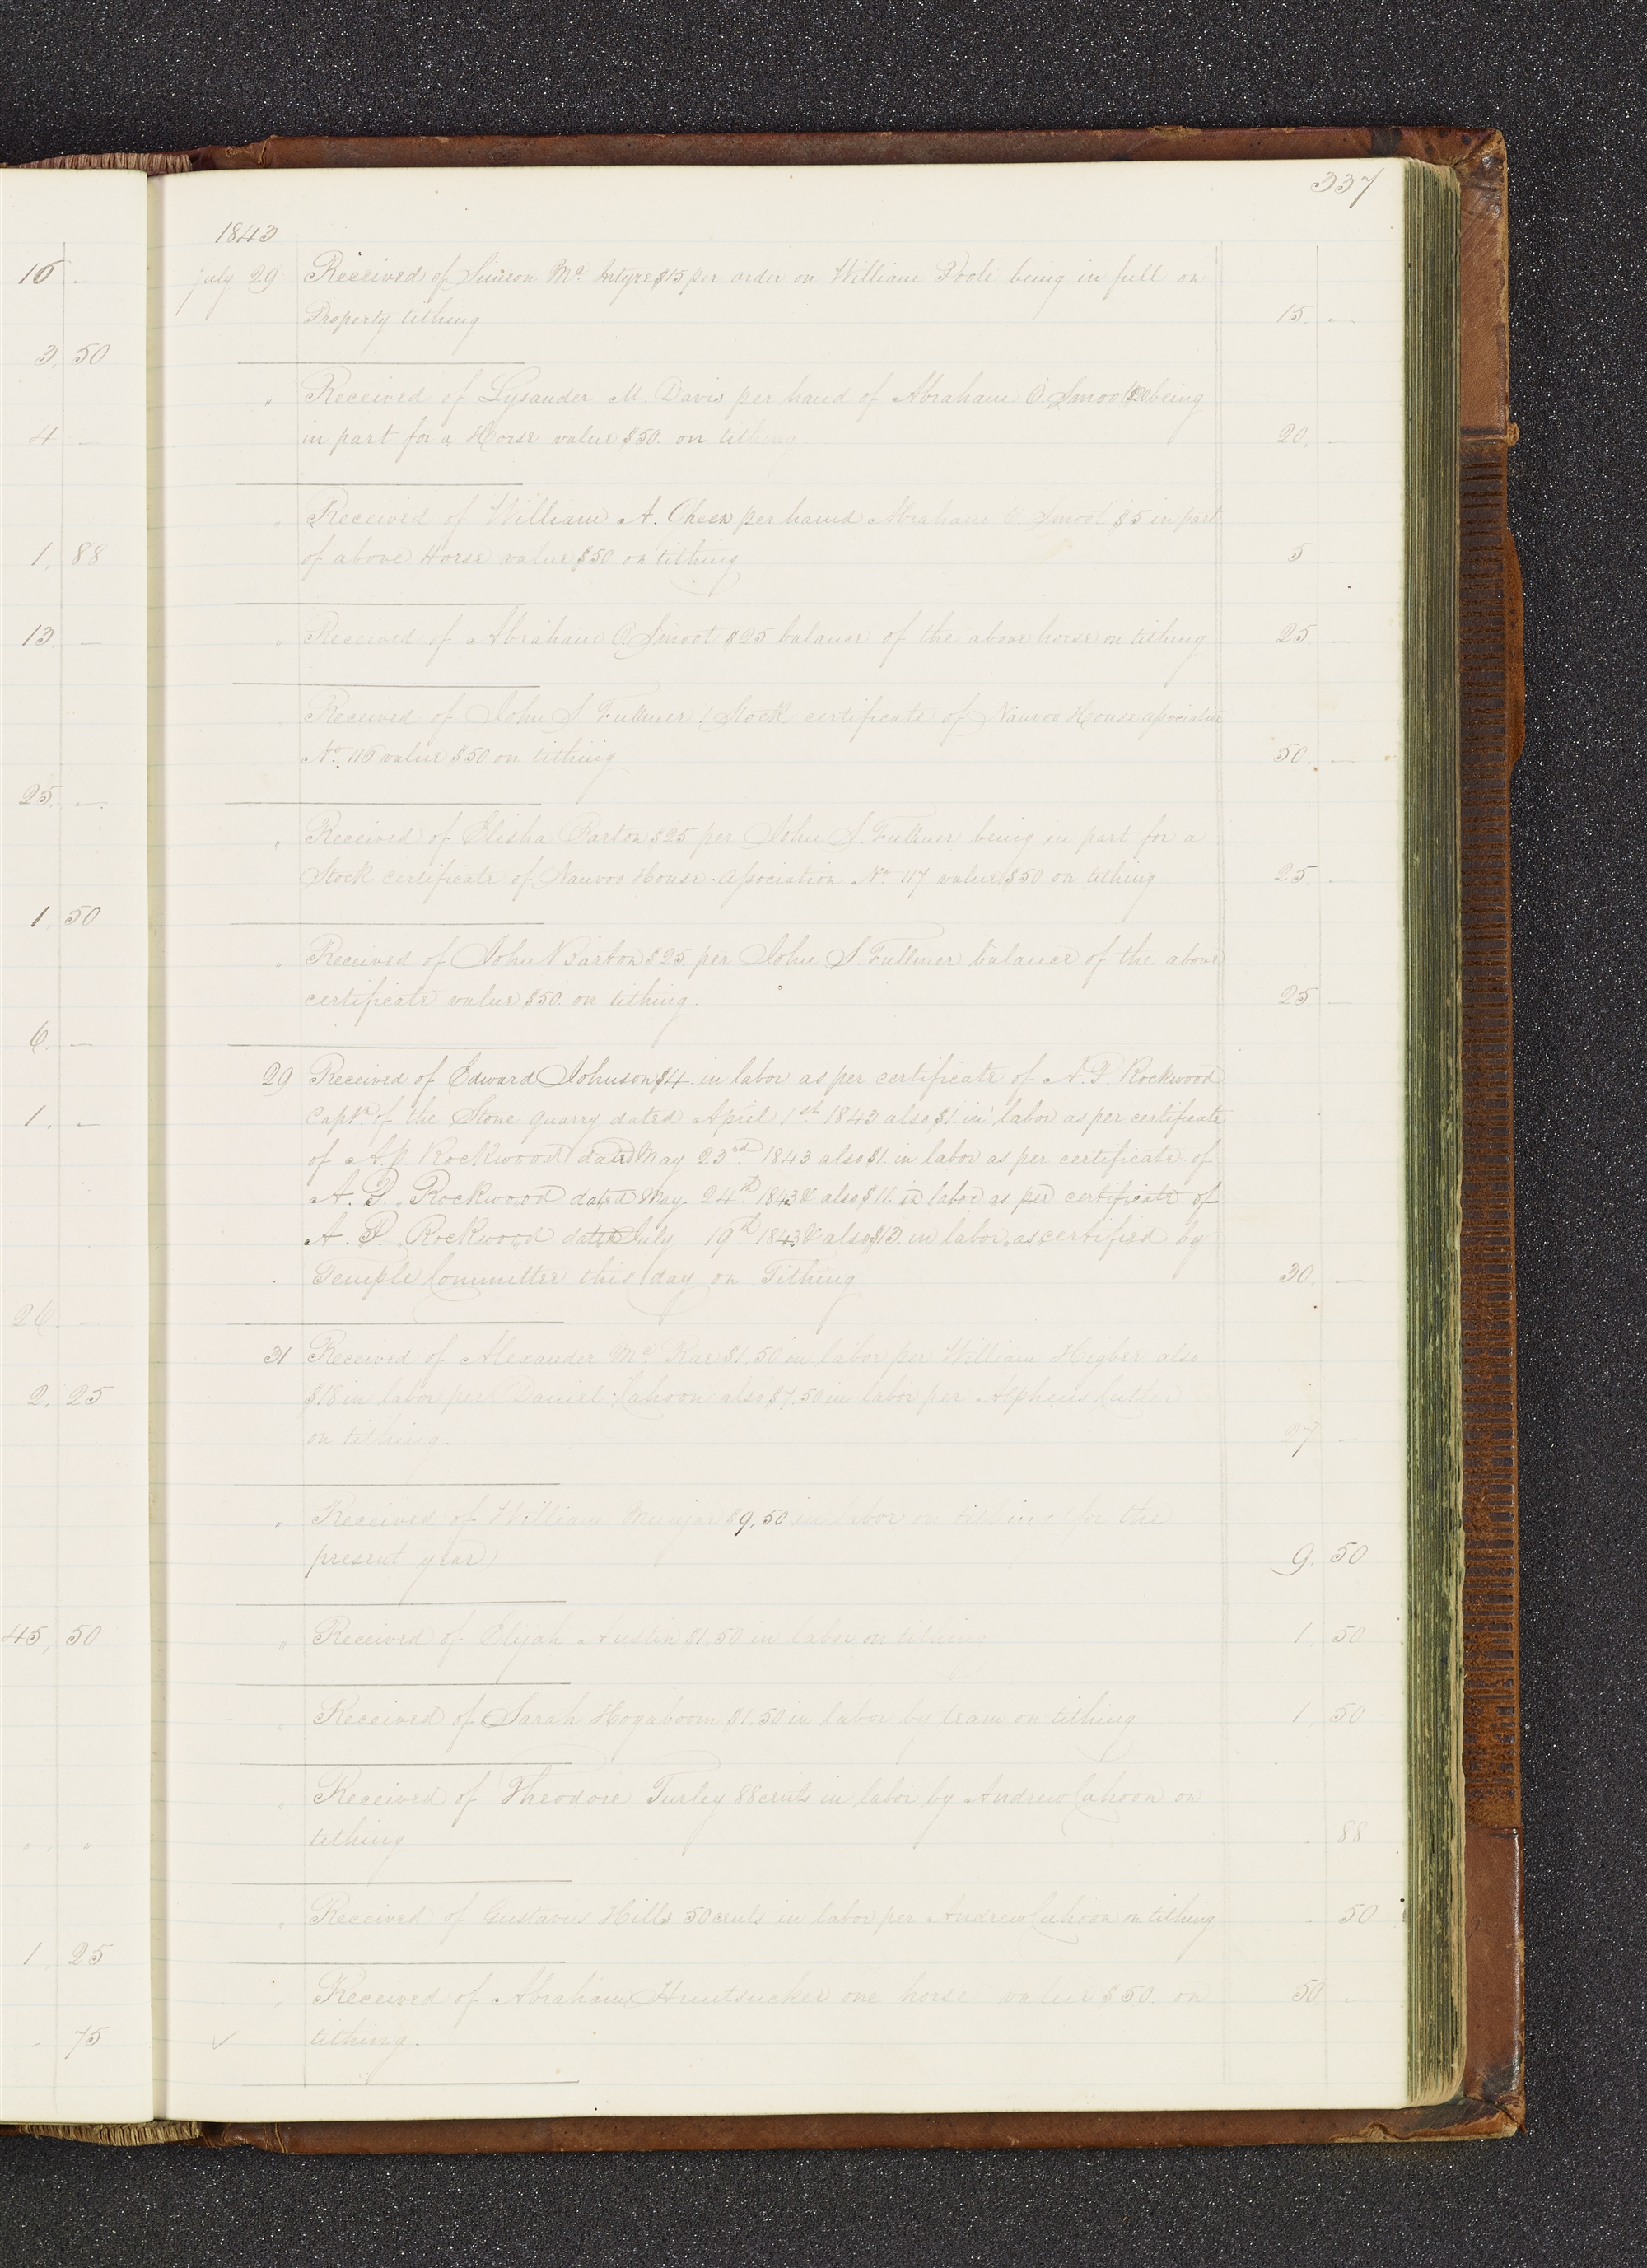 337
1843
July 29 Received of Simeon Mc Intyre $15 per order on William Poole being in full on
Property tithing 15. —
" Received of Lysander M. Davis per hand of Abraham O. Smoot $20 being
in part for a Horse value $50. on tithing 20. —
" Received of William A. Cheek per hand Abraham O. Smoot $5 in part
of above Horse value $50 on tithing 5 —
" Received of Abraham O. Smoot $25 balance of the above horse on tithing 25. —
" Received of John S. Fullmer 1 Stock certificate of Nauvoo House association
No. 116 value $50 on tithing 50. —
" Received of Elisha Barton $25 per John S. Fullmer being in part for a
Stock certificate of Nauvoo House Association No. 117 value $50 on tithing 25. —
" Received of John Barton $25 per John S. Fullmer balance of the above
certificate value $50. on tithing. 25 —
29 Received of Edward Johnson $4. in labor as per certificate of A. P. Rockwood
Captn. of the Stone quarry dated April 1st 1843 also $1. in labor as per certificate
of A. P. Rockwood dated May 23rd. 1843 also $1. in labor as per certificate of
A. P. Rockwood dated May 24th 1843 & also $11. in labor as per certificate of
A. P. Rockwood dated July 19th 1843 & also $13. in labor, as certified by
Temple Committee this day on Tithing 30. —
31 Received of Alexander Mc Rae $1.50 in labor per William Higbee also
$18 in labor per Daniel Cahoon also $7.50 in labor per Alpheus Cutler
on tithing. 27 —
" Received of William $9,50 in labor on tithing (for the
present year) 9. 50
" Received of Elijah Austin $1,50 in labor on tithing 1. 50
" Received of Sarah Hogaboom $1.50 in labor by team on tithing 1. 50
" Received of Theodore Turley 88 cents in labor by Andrew Cahoon on
tithing 88
" Received of Gustavus Hills 50 cents in labor per Andrew Cahoon on tithing 50
" Received of Abraham Huntsucker one horse value $50. on 50. —
✓ tithing.
16 —
3, 50
4 —
1, 88
13. —
25. —
1, 50
6. —
1. —
26. —
2. 25
45, 50
" "
1, 25
75